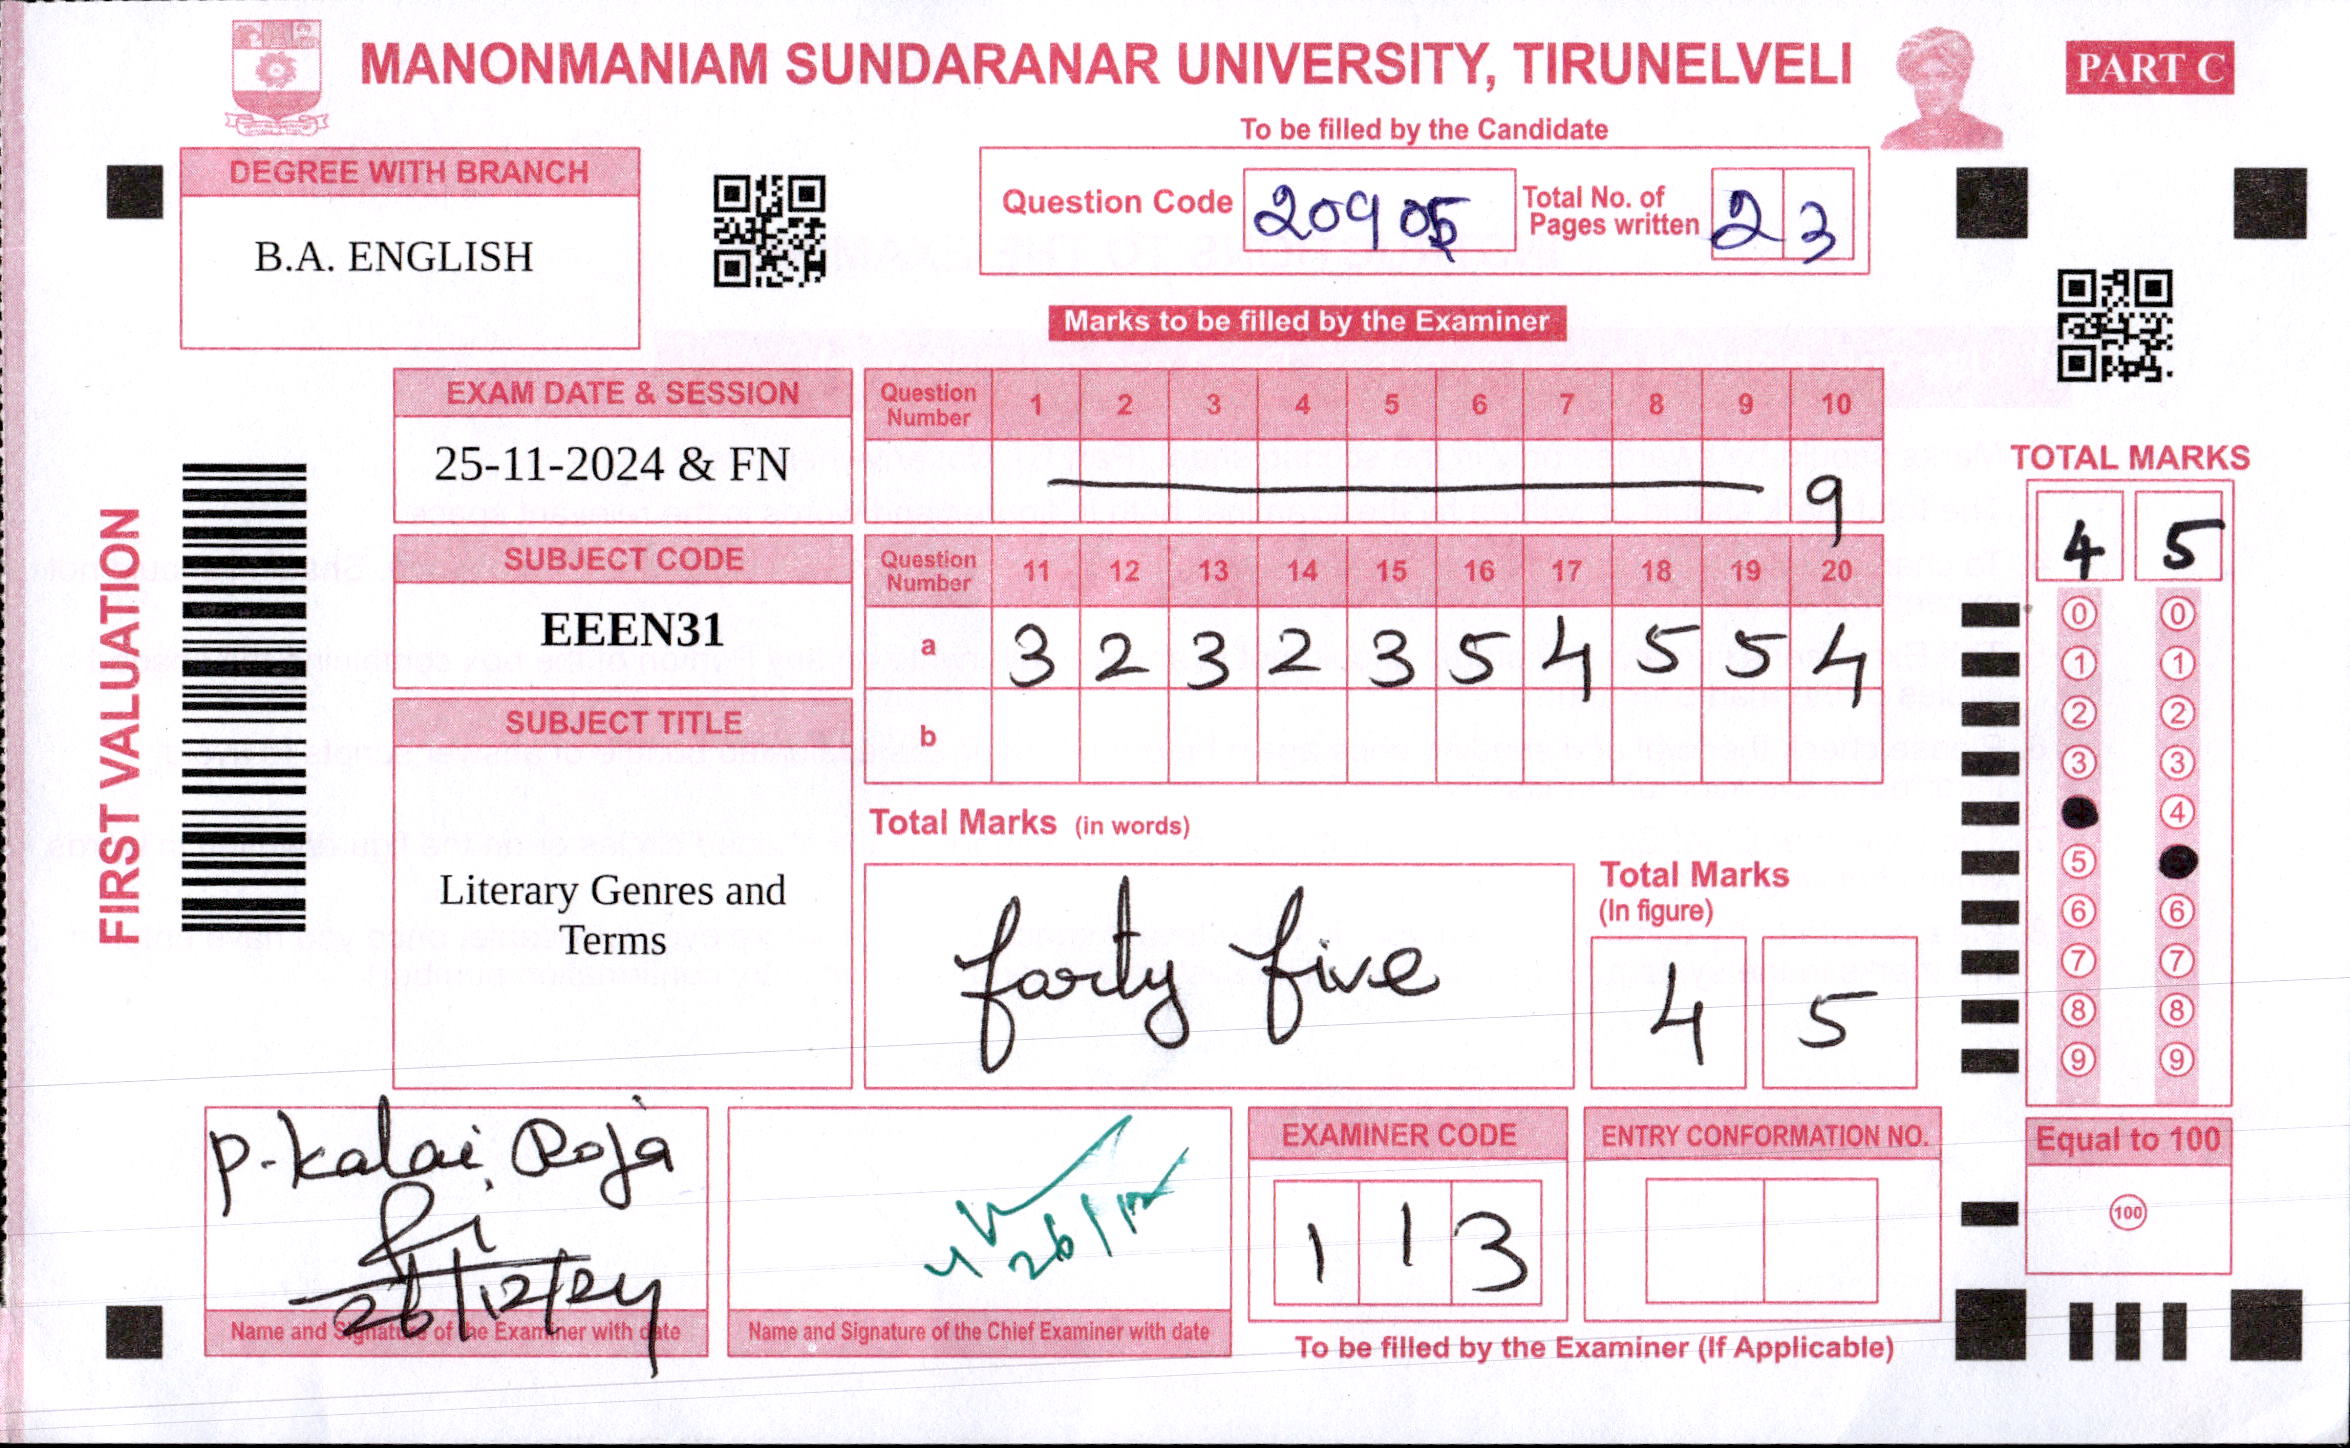 MANONMANIAM SUNDARANAR UNIVERSITY, TIRUNELVELI
PART C
To be filled by the Candidate
DEGREE WITH BRANCH
B.A. ENGLISH
Question Code 20905 Total No. of Pages written 23
Marks to be filled by the Examiner
FIRST VALUATION
EXAM DATE & SESSION
25-11-2024 & FN
SUBJECT CODE
EEEN31
SUBJECT TITLE
Literary Genres and
Terms
Question Number 1 2 3 4 5 6 7 8 9 10
9
Question Number 11 12 13 14 15 16 17 18 19 20
a 3 2 3 2 3 5 4 5 5 4
b
Total Marks (in words)
forty five
Total Marks
(In figure)
4 5
TOTAL MARKS
4 5
0 0
1 1
2 2
3 3
4
5
6 6
7 7
8 8
9 9
Equal to 100
100
P. Kalai Roja
26/12/24
Name and Signature of the Examiner with date
26/12
Name and Signature of the Chief Examiner with date
EXAMINER CODE
1 1 3
ENTRY CONFORMATION NO.
To be filled by the Examiner (If Applicable)